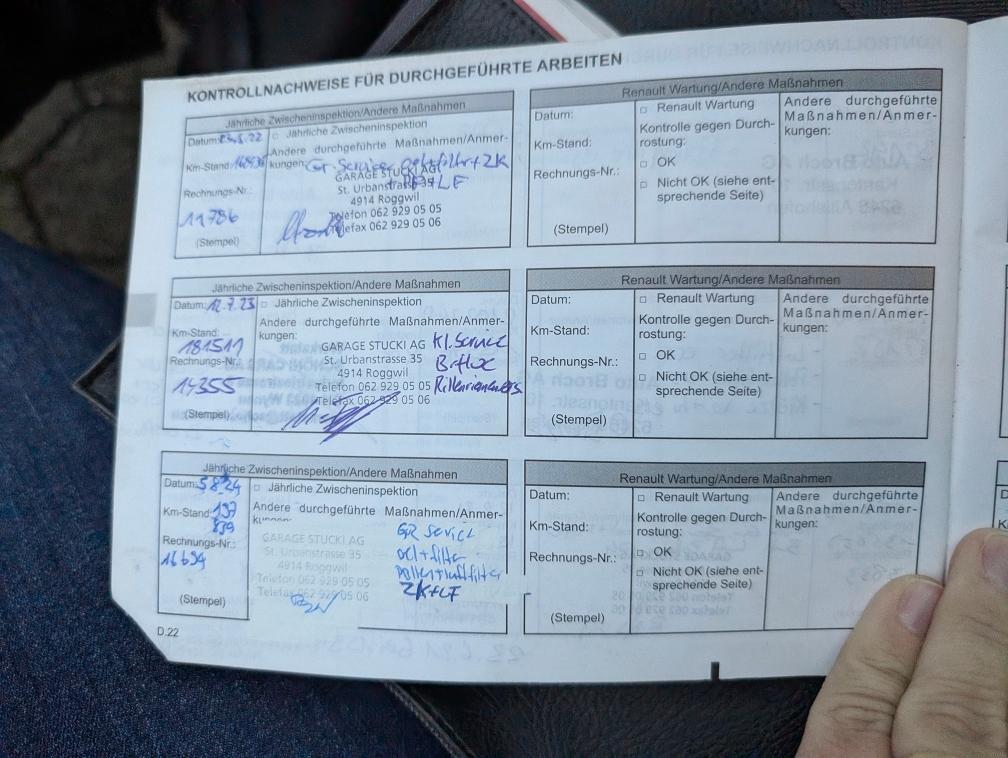 KONTROLLNACHWEISE FÜR DURCHGEFÜHRTE ARBEITEN
Jährliche Zwischeninspektion/Andere Maßnahmen
Datum:
□ Jährliche Zwischeninspektion
Km-Stand:
Andere durchgeführte Maßnahmen/Anmer-
kungen: Gr. Service
GARAGE STUCKI AG
St. Urbanstrasse 35
4914 Roggwil
Telefon 062 929 05 05
Telefax 062 929 05 06
Rechnungs-Nr.:
11786
(Stempel)
Renault Wartung/Andere Maßnahmen
Datum:
Km-Stand:
Rechnungs-Nr.:
(Stempel)
□ Renault Wartung
Kontrolle gegen Durch-
rostung:
□ OK
□ Nicht OK (siehe ent-
sprechende Seite)
Andere durchgeführte
Maßnahmen/Anmer-
kungen:
Jährliche Zwischeninspektion/Andere Maßnahmen
Datum: 12.7.23
□ Jährliche Zwischeninspektion
Km-Stand:
181511
Rechnungs-Nr.:
14355
(Stempel)
Andere durchgeführte Maßnahmen/Anmer-
kungen:
GARAGE STUCKI AG
St. Urbanstrasse 35
4914 Roggwil
Telefon 062 929 05 05
Telefax 062 929 05 06
Kl. Service
Renault Wartung/Andere Maßnahmen
Datum:
Km-Stand:
Rechnungs-Nr.:
(Stempel)
□ Renault Wartung
Kontrolle gegen Durch-
rostung:
□ OK
□ Nicht OK (siehe ent-
sprechende Seite)
Andere durchgeführte
Maßnahmen/Anmer-
kungen:
Jährliche Zwischeninspektion/Andere Maßnahmen
Datum: 5.8.24
□ Jährliche Zwischeninspektion
Km-Stand: 197
839
Rechnungs-Nr.:
16694
(Stempel)
Andere durchgeführte Maßnahmen/Anmer-
GARAGE STUCKI AG
St. Urbanstrasse 35
4914 Roggwil
Telefon 062 929 05 05
Telefax 062 929 05 06
GR Service
oel+filter
Pollen+luftfilter
ZK+LF
Renault Wartung/Andere Maßnahmen
Datum:
Km-Stand:
Rechnungs-Nr.:
(Stempel)
□ Renault Wartung
Kontrolle gegen Durch-
rostung:
□ OK
□ Nicht OK (siehe ent-
sprechende Seite)
Andere durchgeführte
Maßnahmen/Anmer-
kungen:
D.22